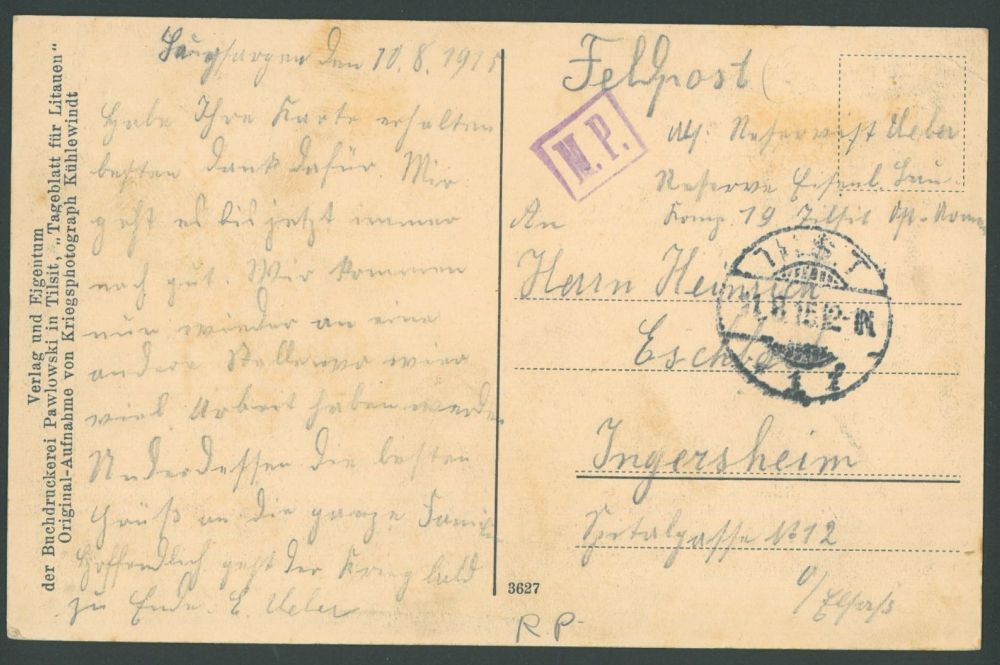 Verlag und Eigentum
der Buchdruckerei Pawlowski in Tilsit, „Tageblatt für Litauen“
Original-Aufnahme von Kriegsphotograph Kühlewindt
Laugszargen den 10.8.1915
Habe Ihre Karte erhalten
besten Dank dafür. Mir
geht es bis jetzt immer
noch gut. Wir kommen
nun wieder an eine
andere Stelle wo wier
viel Arbeit haben werden
Underdessen die besten
Grüß an die ganze Famil
Hoffendlich geht der Krieg bald
zu Ende. E. Ueber
Feldpost
M.P.
Abs. Reservist Ueber
Reserve Eisenb. Bau
Komp 19 Tilsit Ost-
An
Herrn Heinrich
Ingersheim
Spitalgasse No 12
o/Elsass
TILSIT
11.8.15.12-1N
1 f
3627
R.P.